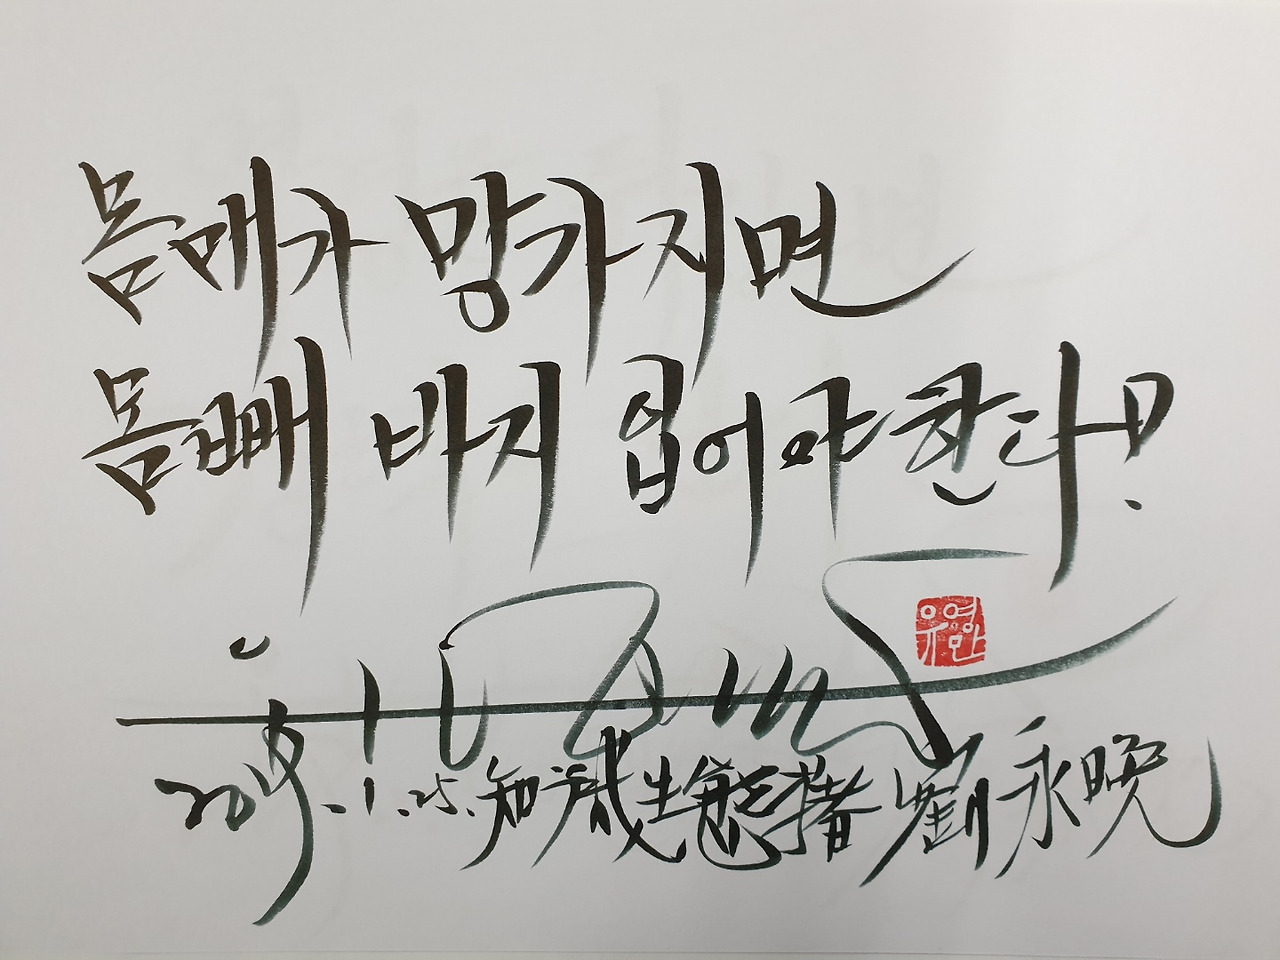 몸매가 망가지면
몸빼 바지 입어야 한다!
유영만
2019. 1. 25. 知識生態學者 劉永晩